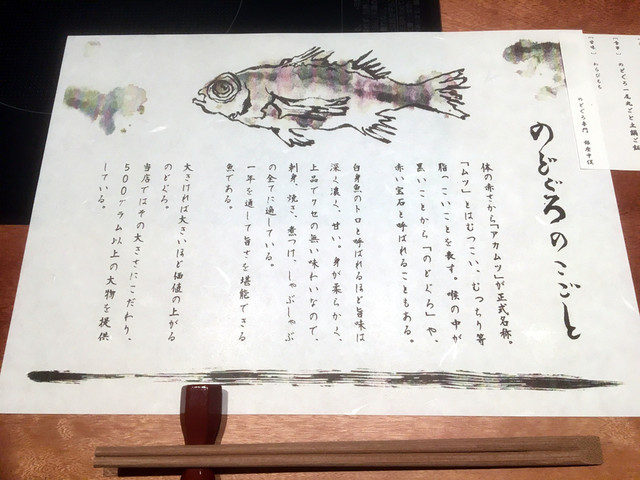 [食事] のどぐろ一尾丸ごと土鍋ご飯
[甘味] わらびもち
のどぐろ専門 銀座中俣
のどぐろのこごと
体の赤さから「アカムツ」が正式名称。
「ムツ」とはむつこい、むつちり等
脂っこいことを表す。喉の中が
黒いことから「のどぐろ」や、
赤い宝石と呼ばれることもある。
白身魚のトロと呼ばれるほど旨味は
深く濃く、甘い。身が柔らかく、
上品でクセの無い味わいなので、
刺身、焼き、煮つけ、しゃぶしゃぶ
の全てに適している。
一年を通して旨さを堪能できる
魚である。
大きければ大きいほど価値の上がる
のどぐろ。
当店ではその大きさにこだわり、
500グラム以上の大物を提供
している。